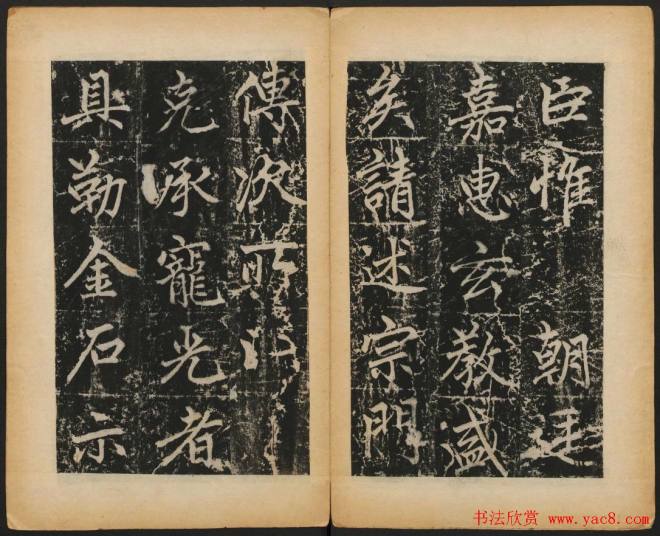 臣惟 朝廷
嘉惠玄教盛
矣請述宗門
傳次所
克承寵光者
具勒金石示
书法欣赏 www.yac8.com